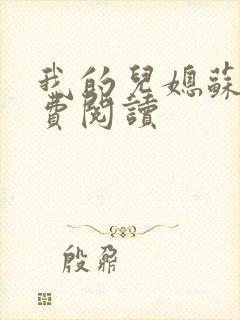 我的兒媳蘇
費閱讀
殷鼐